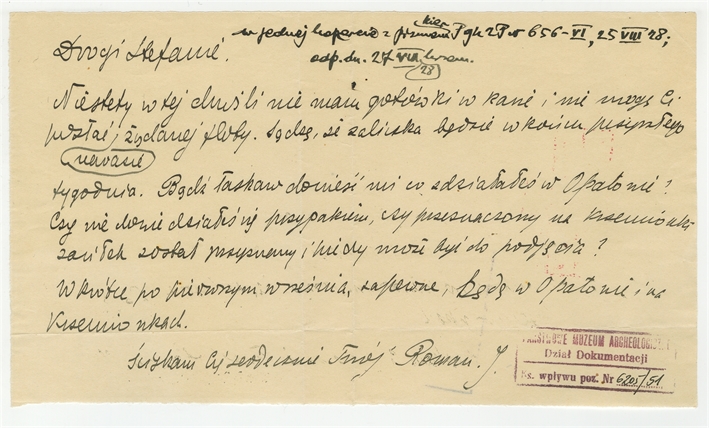 w jednej kopercie z pismem kier. P gk 2P nr 656-VI, 25 VIII 28;
odp. dn. 27 VIII
28
Drogi Stefanie.
Niestety w tej chwili nie mam gotówki w kasie i nie mogę Ci
posłać żądanej floty. Sądzę, że zaliczka będzie w końcu przyszłego
tygodnia. Bądź łaskaw donieść mi co zdziałałeś w Opatowie?
Czy nie dowiedziałś się przypadkiem, czy przeznaczony na Krzemionki
zasiłek został przyznany i kiedy może być do podjęcia?
Wkrótce po pierwszym września, zapewne, będę w Opatowie i na
Krzemionkach.
Ściskam Cię serdecznie Twój Roman. J.
PAŃSTWOWE MUZEUM ARCHEOLOGICZNE
Dział Dokumentacji
Ks. wpływu poz. Nr 6205/51